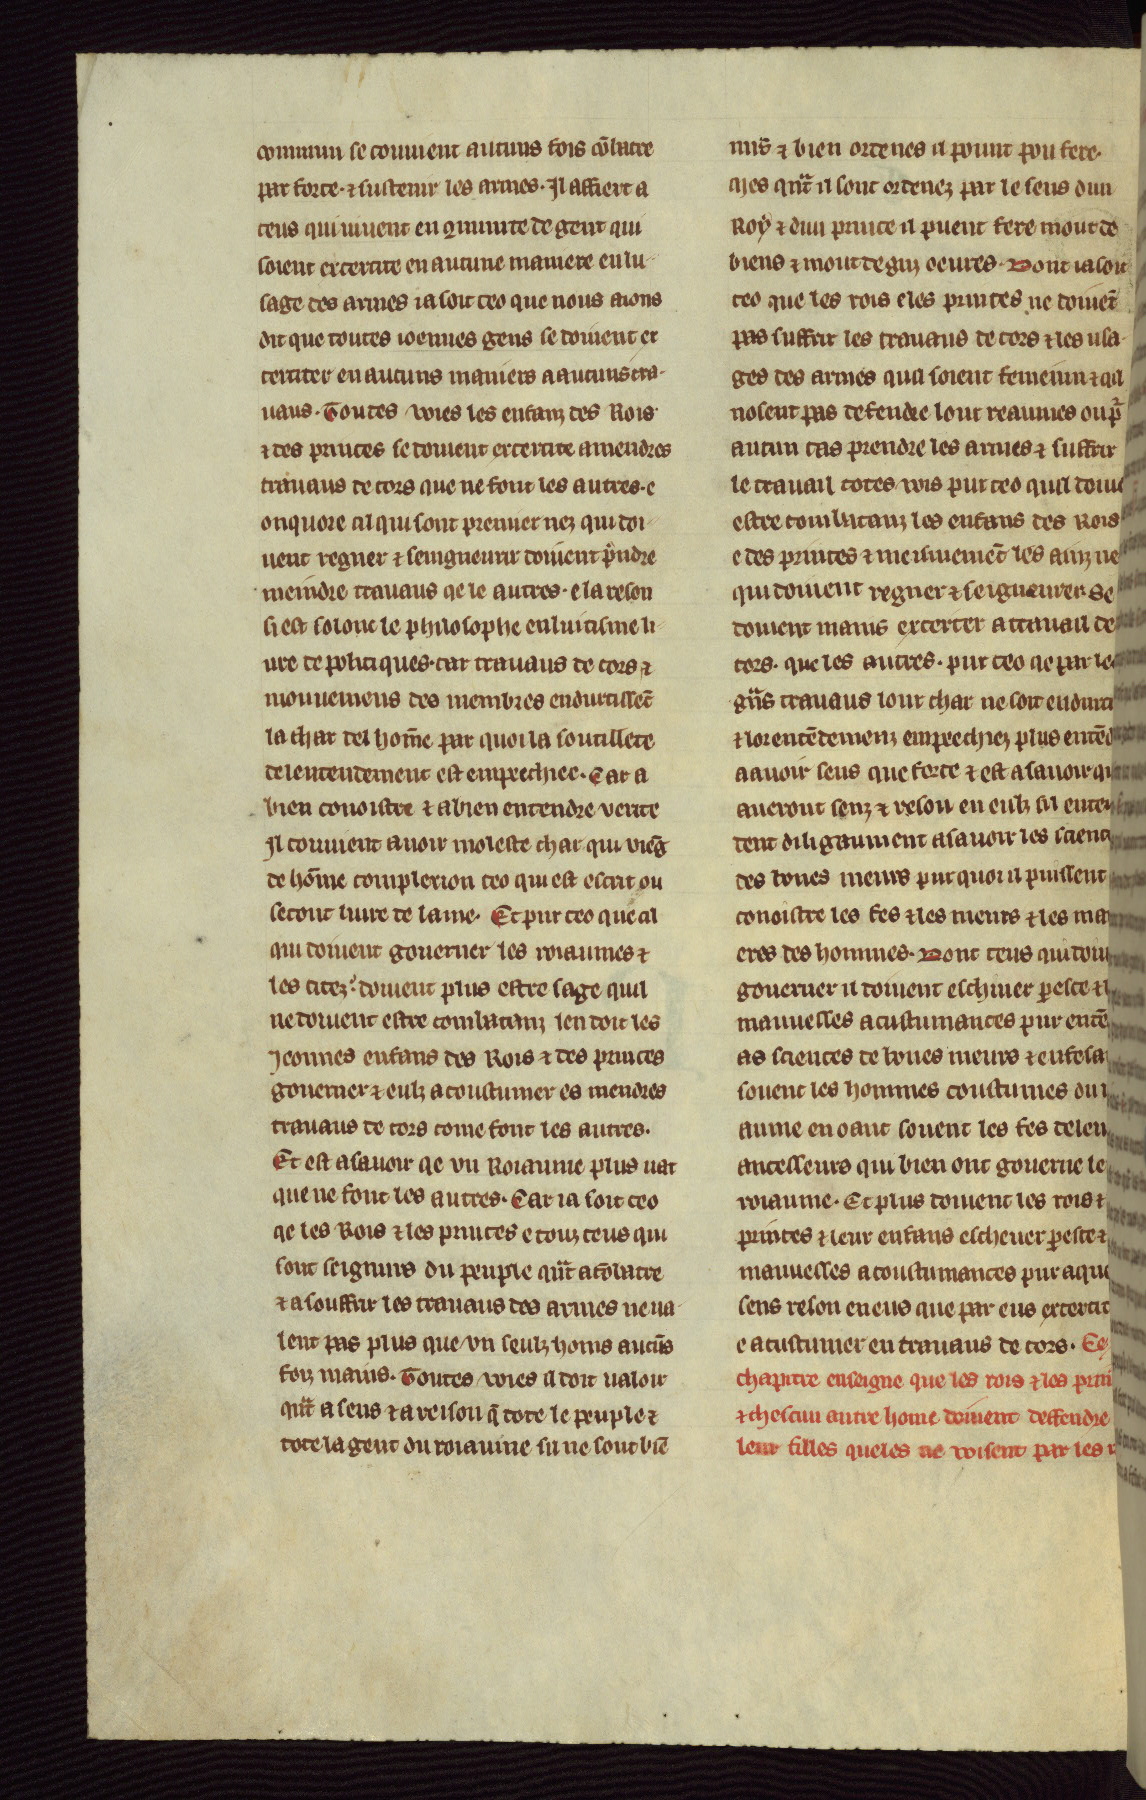 commun se couuient aucuns fois cōbatre
par force. ⁊ sustenir les armes. Il affiert a
ceus qui uiuent en ⁊munite de gent qui
soient excercite en aucune maniere en lu
sage des armes ia soit ceo que nous aions
dit que toutes ioennes gens se doiuent ex
cerciter en aucuns maniers a aucuns tra-
uaus. Toutes voies les enfanz des Rois
⁊ des princes se doiuent excercite a mendres
trauaus de cors que ne font les autres. e
onquore cil qui sont premier nez qui doi
uent regner ⁊ seingneurir doiuent p̄ndre
meindre trauaus qe le autres. e la reson
si est solonc le philosophe en luitisme li
ure de politiques. car trauaus de cors ⁊
mouuemens des membres endurcissēt
la char del hom̄e par quoi la soutillete
de lentendement est empeechiee. Car a
bien conoistre ⁊ a bien entendre verite
Il couuient auoir moleste char qui vieḡ
de hōme complexion ceo qui est escrit ou
secont liure de lame. Et pur ceo que cil
qui doiuent gouerner les roiaumes ⁊
les citez. doiuent plus estre sage quil
ne doiuent estre combatanz len doit les
Jeonnes enfans des Rois ⁊ des princes
gouerner ⁊ eulz acoustumer es mendres
trauaus de cors come font les autres.
Et est a sauoir qe vn Roiaume plus uat
que ne font les autres. Car ia soit ceo
qe les Rois ⁊ les princes e touz ceus qui
sont seignurs du peuple qūt a cōbatre
⁊ a souffrir les trauaus des armes ne ua
lent pas plus que vn seulz homs aucūs
foiz mains. Toutes voies il doit ualoir
qūt a sens ⁊ a reison q̄ tote le peuple ⁊
tote la gent du roiaume si il ne sont biē
mis ⁊ bien ordenes il pount pou fere.
Mes qūt il sont ordenez par le sens dun
Roy ⁊ dun prince il puent fere mout de
biens ⁊ mout de g̃nz oeures. Dont ia soit
ceo que les rois e les princes ne doiuēt
pas suffrir les trauaus de cors ⁊ les usa-
ges des armes quil soient femenin ⁊ qil
nosent pas defendre lour reaumes ou p̄
aucun cas prendre les armes ⁊ suffrir
le trauail totes vois pur ceo quil doiue
estre combatanz les enfans des Rois
e des princes ⁊ meismemēt les ainz ne
qui doiuent regner ⁊ seigneurer se
doiuent mains excerter a trauail de
cors. que les autres. pur ceo qe par le
gn̄s trauaus lour char ne soit endurci
⁊ lor entēdemenz empeechiez plus entēd
a auoir sens que force ⁊ est a sauoir qi
aueront senz ⁊ reson en eulz sil enten
dent diligaument a sauoir les scienc
des bones meurs pur quoi il puissent
conoistre les fes ⁊ les meurs ⁊ les ma
eres des hommes. Dont ceus qui doiu
gouerner il doiuent eschiuer pesce ⁊ l
mauuelles acustumances pur entē
as sciences de bones meurs ⁊ en fesa
souent les hommes coustumes ou r
aume en oant souent les fes de leur
ancesseurs qui bien ont gouerne le
roiaume. Et plus doiuent les rois ⁊
princes ⁊ leur enfans escheuer pesce ⁊
mauuelles acoustumances pur aque
sens reson en eus que par eus excercit
e acustumer en trauaus de cors. Ce
chapitre enseigne que les rois ⁊ les prin
⁊ chescun autre home doiuent deffendre
leur filles queles ne voisent par les